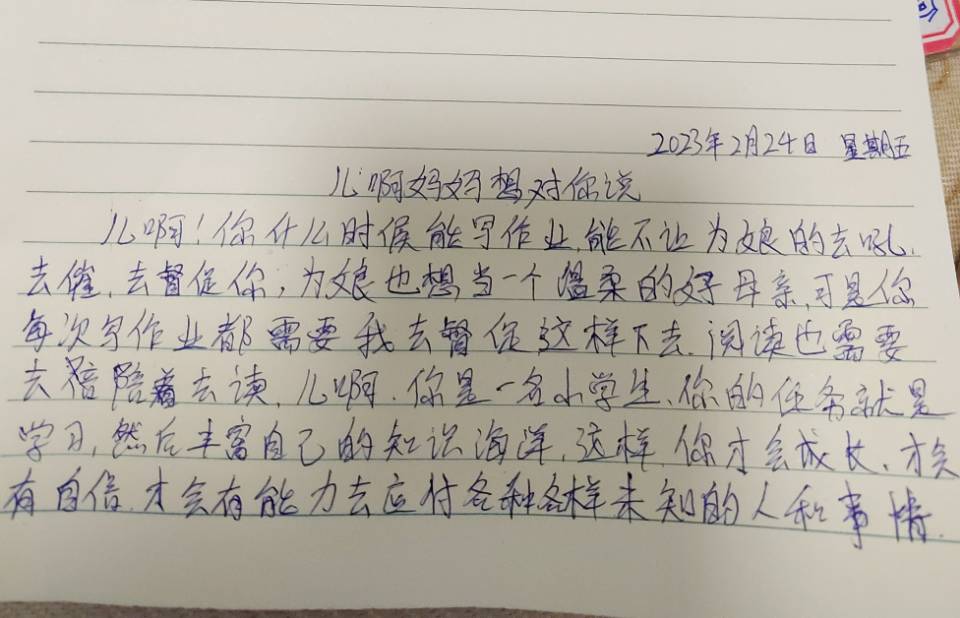 2023年2月24日 星期五
儿啊妈妈想对你说
儿啊!你什么时候能写作业,能不让为娘的去吼,
去催,去督促你,为娘也想当一个温柔的好母亲,可是你
每次写作业都需要我去督促这样下去.阅读也需要
去陪着去读,儿啊,你是一名小学生,你的任务就是
学习,然后丰富自己的知识海洋,这样,你才会成长,才会
有自信,才会有能力去应付各种各样未知的人和事情.